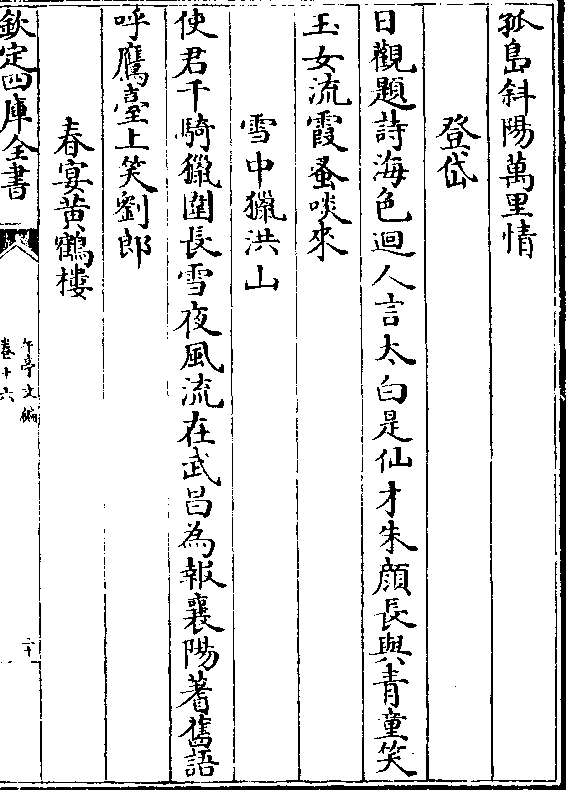 孤島斜陽萬里情
登岱
日觀題詩海色迴人言太白是仙才朱顔長與青童笑
玉女流霞蚤啖來
雪中獵洪山
使君千騎獵圍長雪夜風流在武昌為報襄陽著舊語
呼鷹臺上笑劉郎
春宴黄鶴樓
欽定四庫全書
午亭文編
卷十六
二十